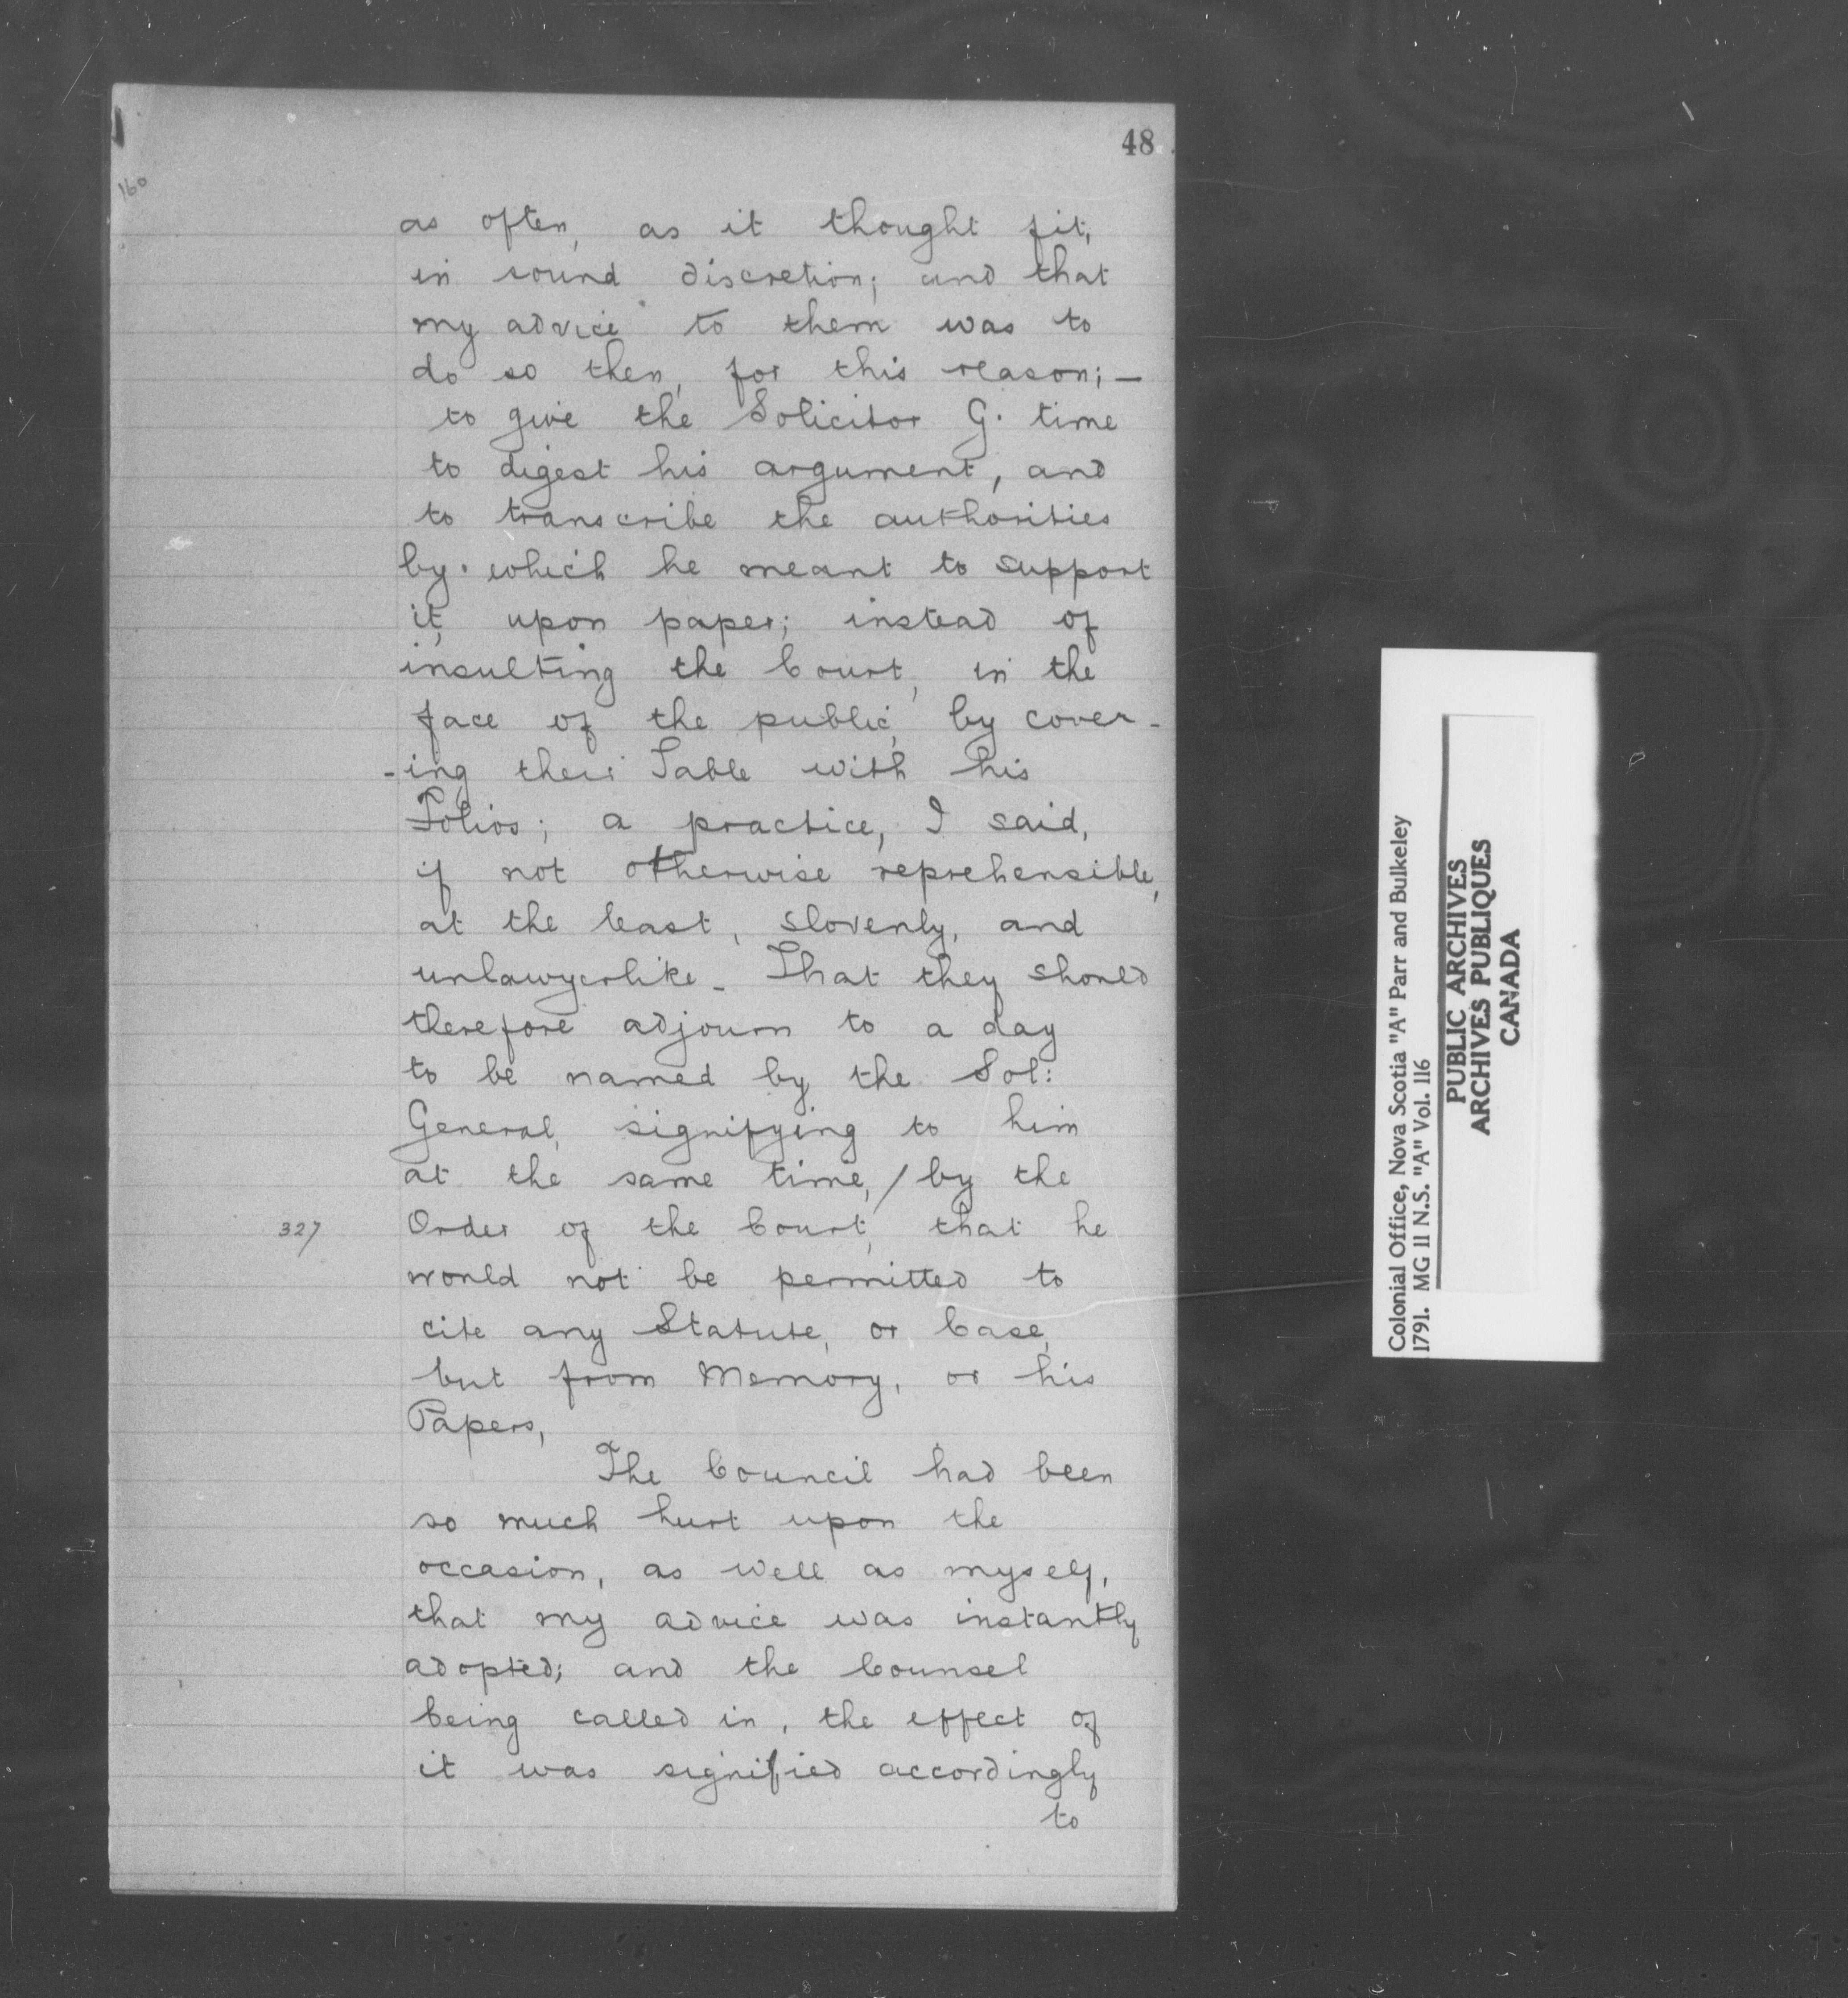 48
160
as often, as it thought fit,
in sound discretion; and that
my advice to them was to
do so then, for this reason;—
to give the Solicitor G. time
to digest his argument, and
to transcribe the authorities
by which he meant to support
it, upon paper; instead of
insulting the Court, in the
face of the public, by cover-
-ing their Table with his
Folios; a practice, I said,
if not otherwise reprehensible,
at the least, slovenly, and
unlawyerlike_ That they should
therefore adjourn to a day
to be named by the Sol:
General, signifying to him
at the same time, / by the
327 Order of the Court, that he
would not be permitted to
cite any Statute, or Case,
but from Memory, or his
Papers,
The Council had been
so much hurt upon the
occasion, as well as myself,
that my advice was instantly
adopted; and the Counsel
being called in, the effect of
it was signified accordingly
to
Colonial Office, Nova Scotia "A" Parr and Bulkeley
1791. MG 11 N.S. "A" Vol. 116
PUBLIC ARCHIVES
ARCHIVES PUBLIQUES
CANADA